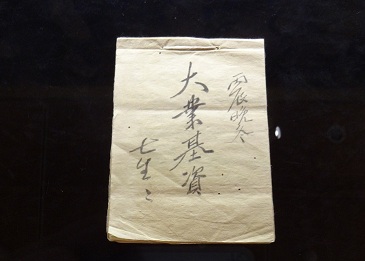 丙辰晩冬
大業基資
七生〻